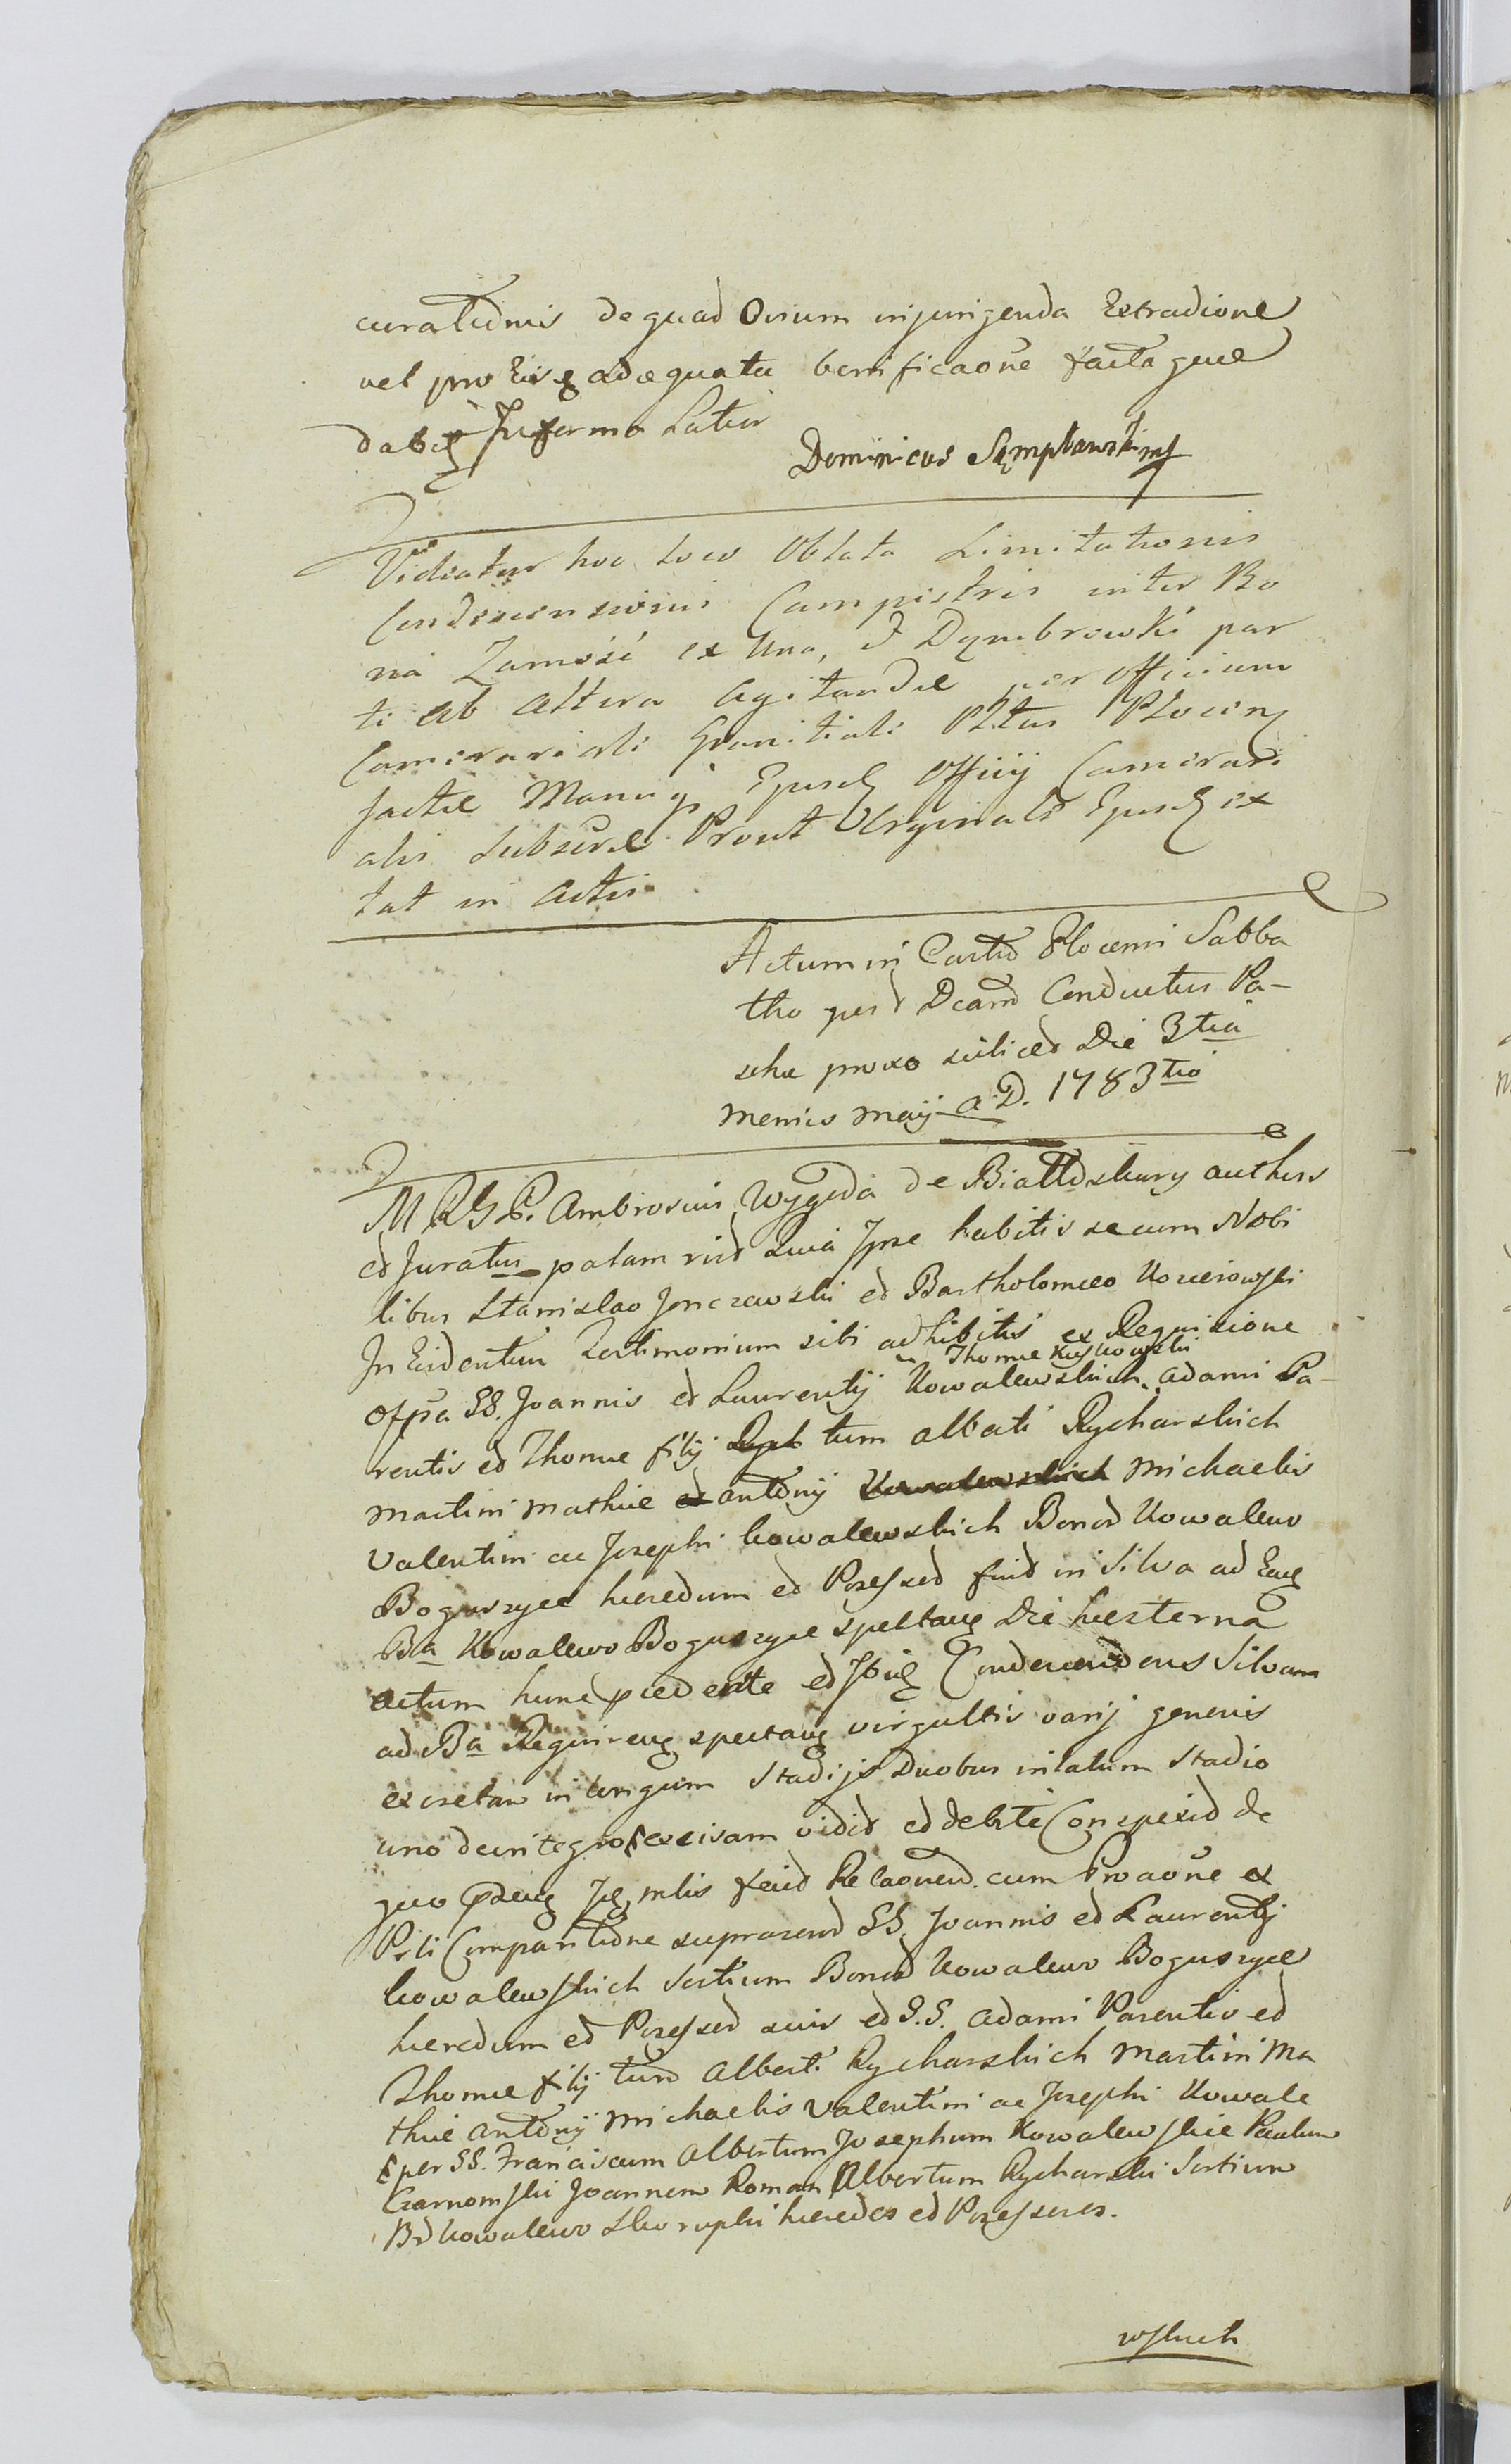 curatidnis de quad Ovium injungenda Extradione
vel pro Eisq adæquata bonificaoñe facta quæ
dabq In forma Latiu
Dominicus Sęmpławski mp
Videatur hoc loco Oblata Limitationis
Condescensionis Campestris inter Bo
na Zamość ex Una, & Dąmbrowki par
ti ab Altera Agitandæ per Officium
Camerariali Granitiali Pltus Plocen
factæ Manuq Ejusd Officij Camerari
alis Subscræ Prout Orginale Ejusd ex
tat in Actis
Actum in Castro Plocensi Sabba
tho post Dcam Conductus Pa-
schæ proxo scilicet Die 3tia
Mensis Maij A.D. 1783tio
M R G P. Ambrosius Wygoda de Białldskury authens
et Juratus palam rect Quia Ipse habitis secum Nobi
libus Stanislao Jonczewski et Bartholomæo Kosciowski
In Evidentius Testimonium sibi adhibitis ex Requisicione
Thomæ Kuskowski
Offa GG. Joannis et Laurentij Kowalewskich Adami Pa-
rentis et Thomæ filij tum Alberti Rycharskich
Martini Mathiæ Antonij Michaelis
Valentini ac Josephi Kowalewskich Bonor Kowalewo
Boguszyce hæredum et Possessor fuit in Silva ad Eaq
Bna Kowalewo Boguszyce spectanq Die hesterna
Actum hunc præcedente et Ibiq Condescendens Silvam
ad Ba Requirenq spectanq virgultis varij generis
excretam in longum Stadijs Duobus in latum Stadio
uno de integro excisam vidit et debite Conspexit de
quo prædenq Jq mlis fecit Relaonem cum Proaoñe ex
Prti Comparitidne suprarend GG. Joannis et Laurentij
Kowalewskich Sortium Bonor Kowalewo Boguszyce
hæredum et Possessor suis et G.G. Adami Parentis et
Thomæ filij tum Alberti Rycharskich Martini Ma
thiæ Antonij Michaelis Valentini ac Josephi Kowale
per GG. Franciscum Albertum Josephum Kowalewskie Paulum
Czarnomski Joannem Roman Albertum Rycharski Sortium
Br Kowalewo Skorupki hæredes et Possessores.
wskich